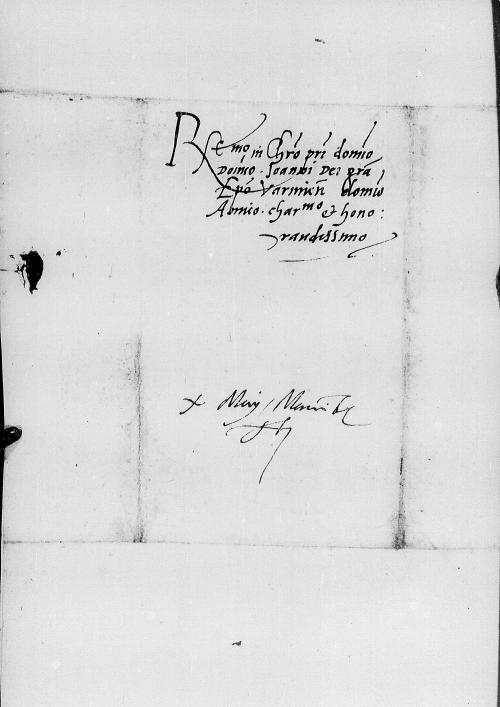 Remo in Chro pri domino
Domio. Joanni Dei gra
Epo Varmien domio
Amico. charmo et hono:
randissimo
x Maij